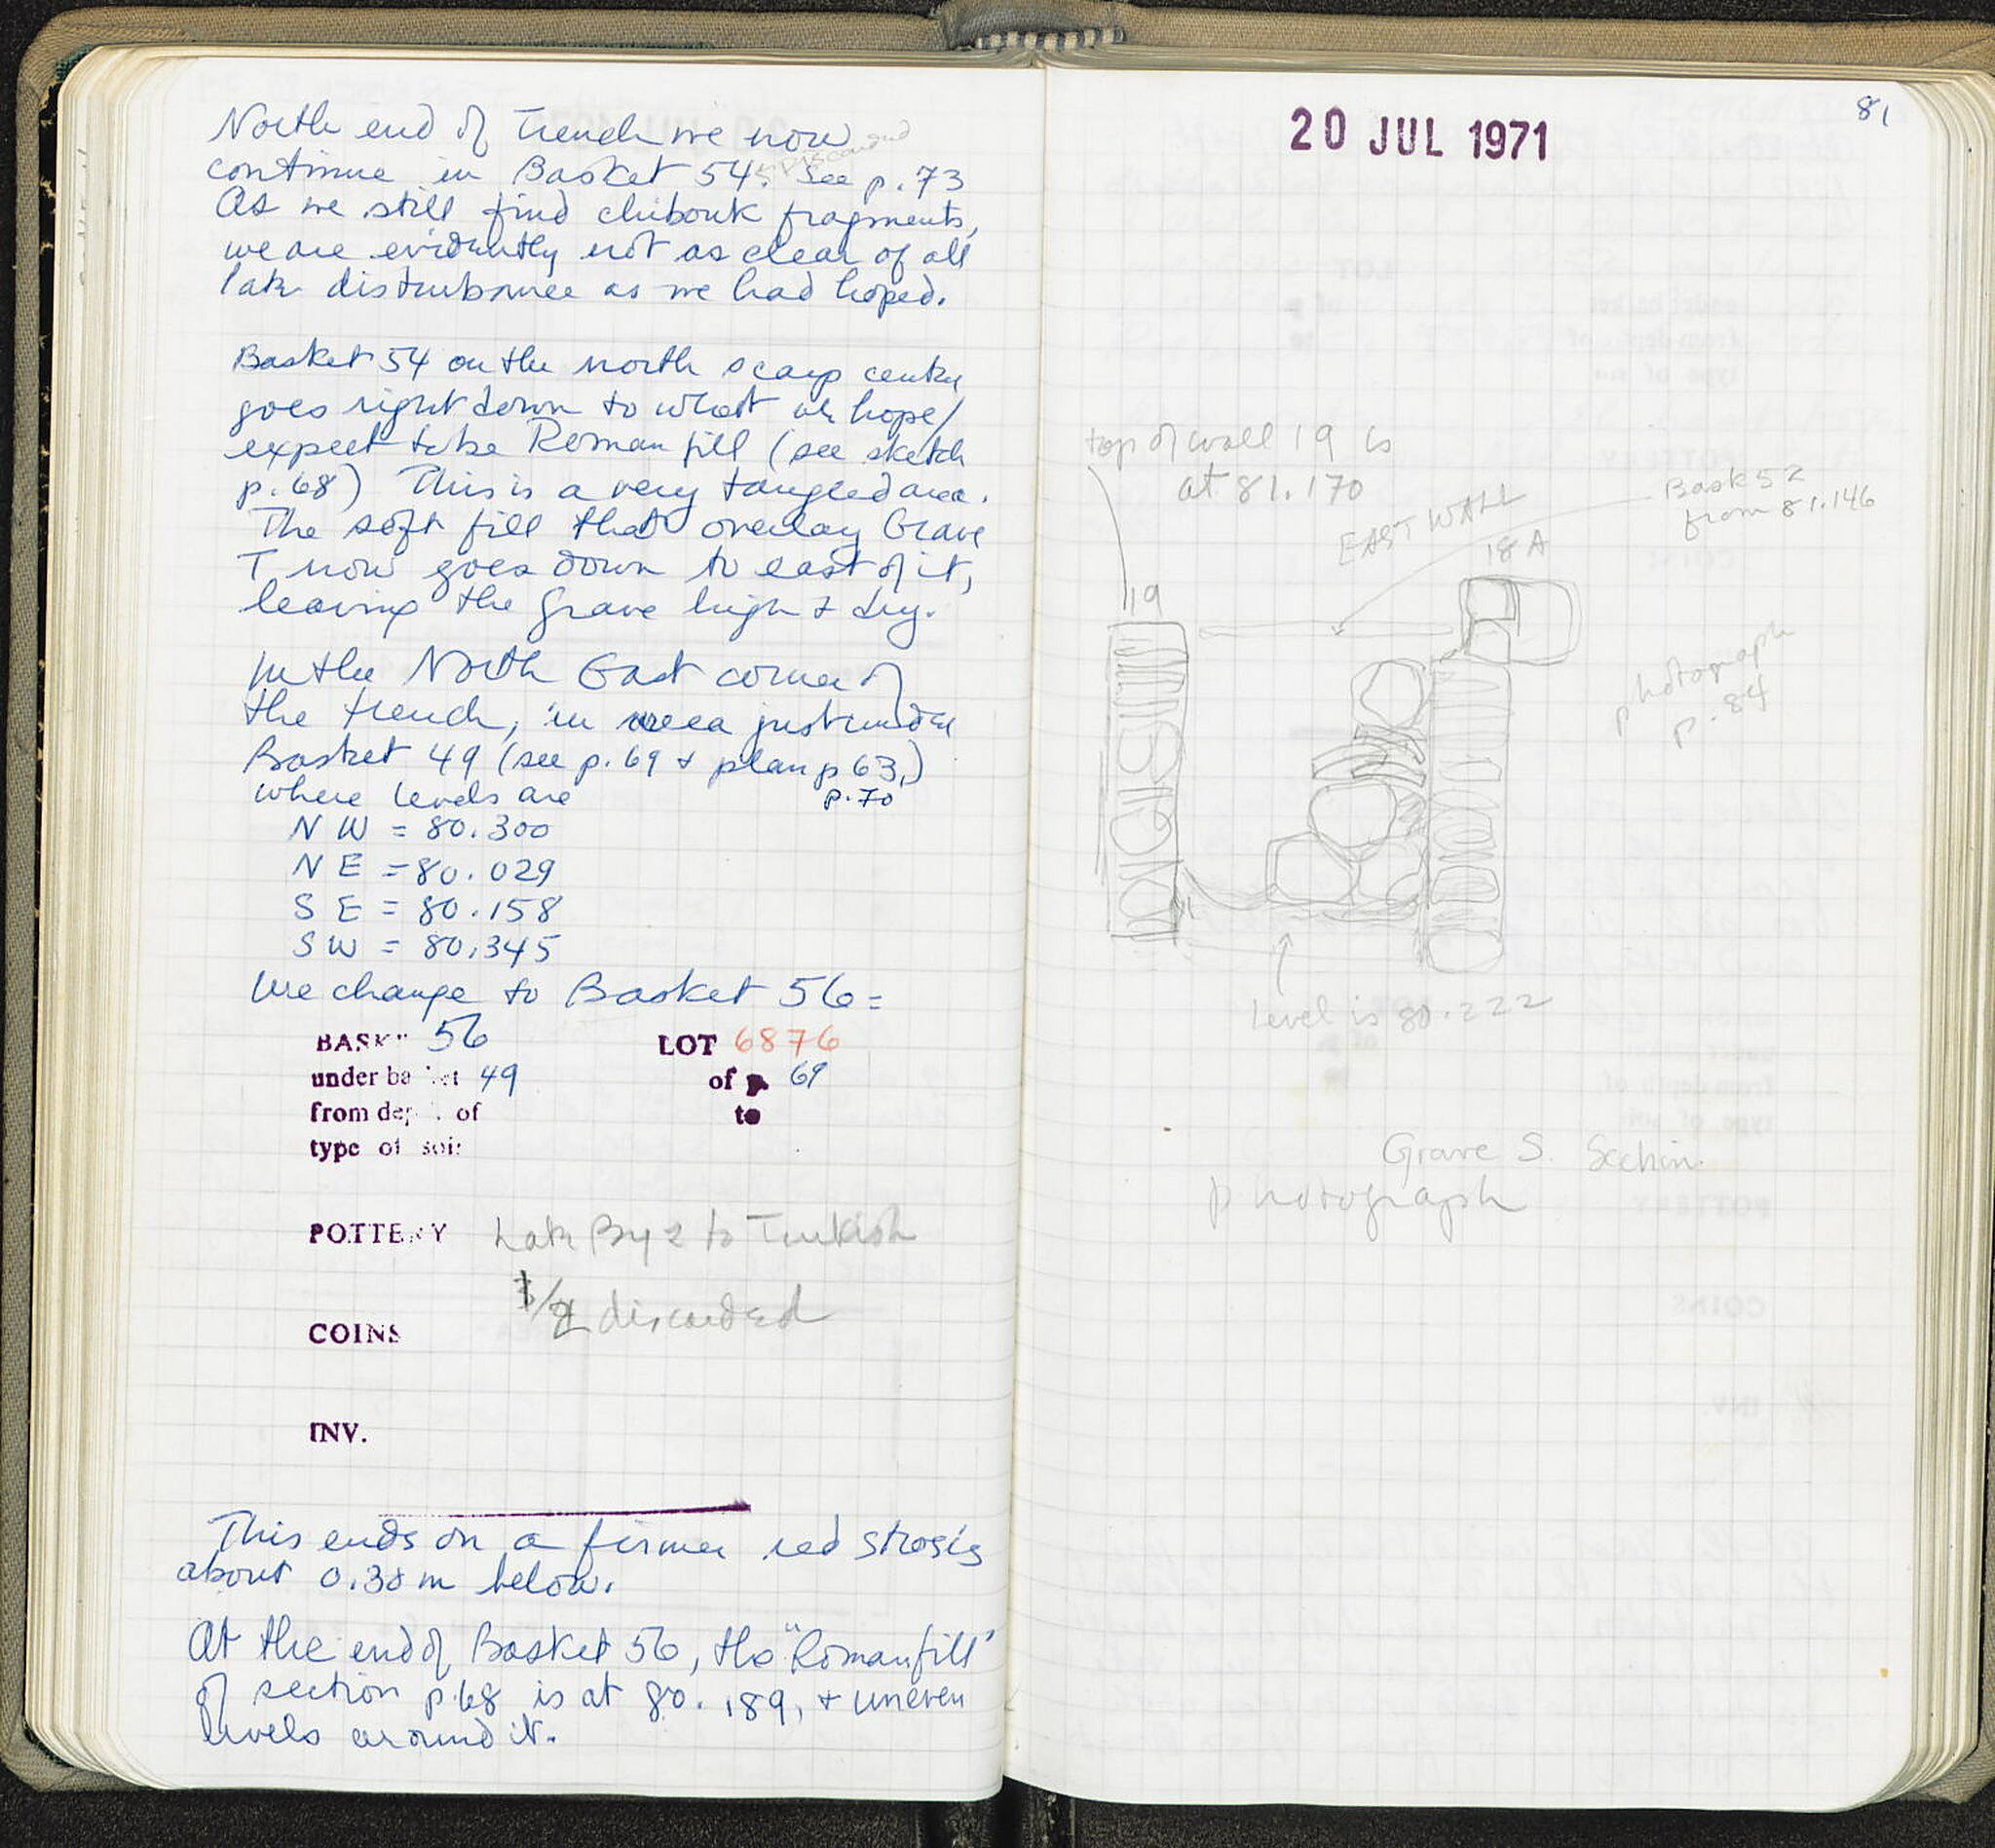 North end of Trench we now
continue in Basket 54. See p. 73
As we still find chibouk fragments,
we are evidently not as clear of all
late disturbance as we had hoped.
Basket 54 on the north scarp center
goes right down to what we hope/
expect to be Roman fill (see sketch
p. 68) This is a very tangled area.
The soft fill that overlay Grave
T now goes down to east of it,
leaving the Grave high & dry.
In the North East corner of
the trench, in area just under
Basket 49 (see p. 69 & plan p 63,)
where levels are p. 70
NW = 80.300
NE = 80.029
SE = 80.158
SW = 80.345
We change to Basket 56 =
BASK 56 LOT 6876
under ba et 49 of p. 69
from dep of to
type of soil
POTTERY Late Byz to Turkish
1/2 discarded
COINS
INV.
This ends on a firmer red strosis
about 0.30 m below.
At the end of Basket 56, the "Roman fill"
of section p. 68 is at 80.189, & uneven
levels around it.
81
20 JUL 1971
top of wall 19 is
at 81.170
Bask 52
from 81.146
EAST WALL
18A
19
photograph
p. 84
level is 80.222
Grave S. Section
photograph